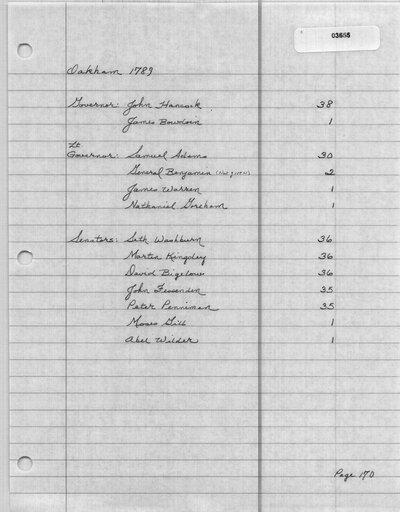 03655
Oakham 1789
Governor: John Hancock 38
James Bowdoin 1
Lt
Governor: Samuel Adams 30
General Benjamin 2
James Warren 1
Nathaniel Gorcham 1
Senators: Seth Washburn 36
Martin Kingsley 36
David Bigelow 36
John Fessenden 35
Peter Penniman 35
Moses Gill 1
Abel Wilder 1
Page 170